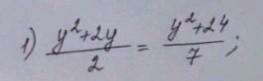 1) (y²+2y)/2 = (y²+24)/7;